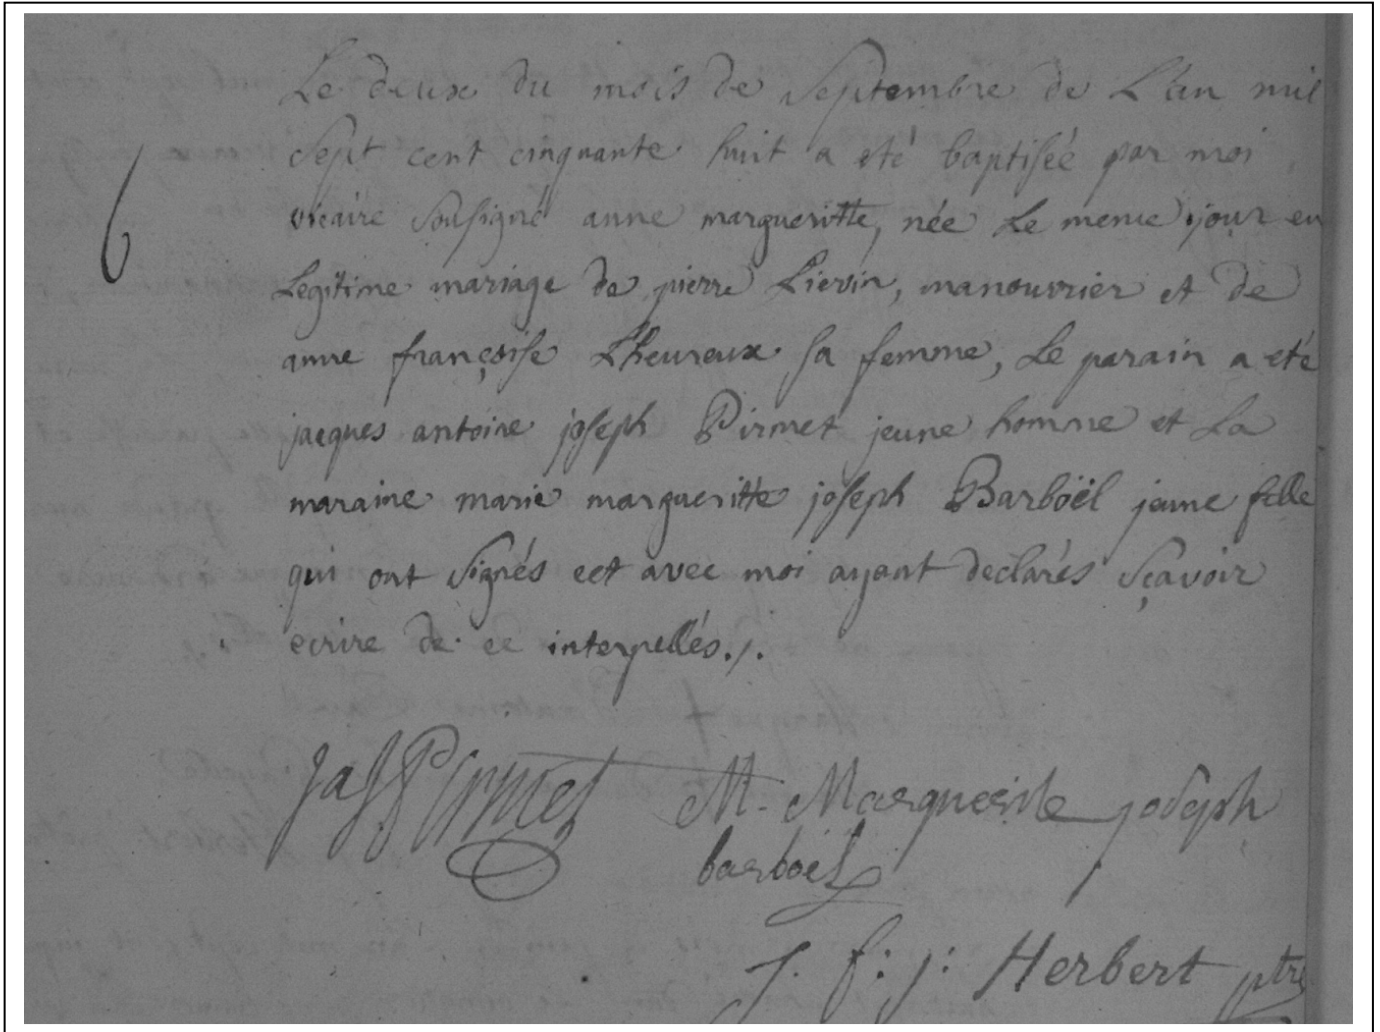 Le deux du mois de Septembre de L'an mil
Sept cent cinquante huit a eté baptisée par moi
6
vicaire Sousigné anne margueritte, née Le meme jour en
Legitime mariage de pierre Lievin, manouvrier et de
anne françoise Lheureux sa femme, Le parain a eté
jacques antoine joseph Pirmet jeune homme et La
maraine marie margueritte joseph Barboël jeune fille
qui ont Signés cet avec moi ayant declarés Sçavoir
ecrire de ce interpellés./.
jaj Pirmet M. Marguerite joseph
barboël
j. f: j: Herbert ptre